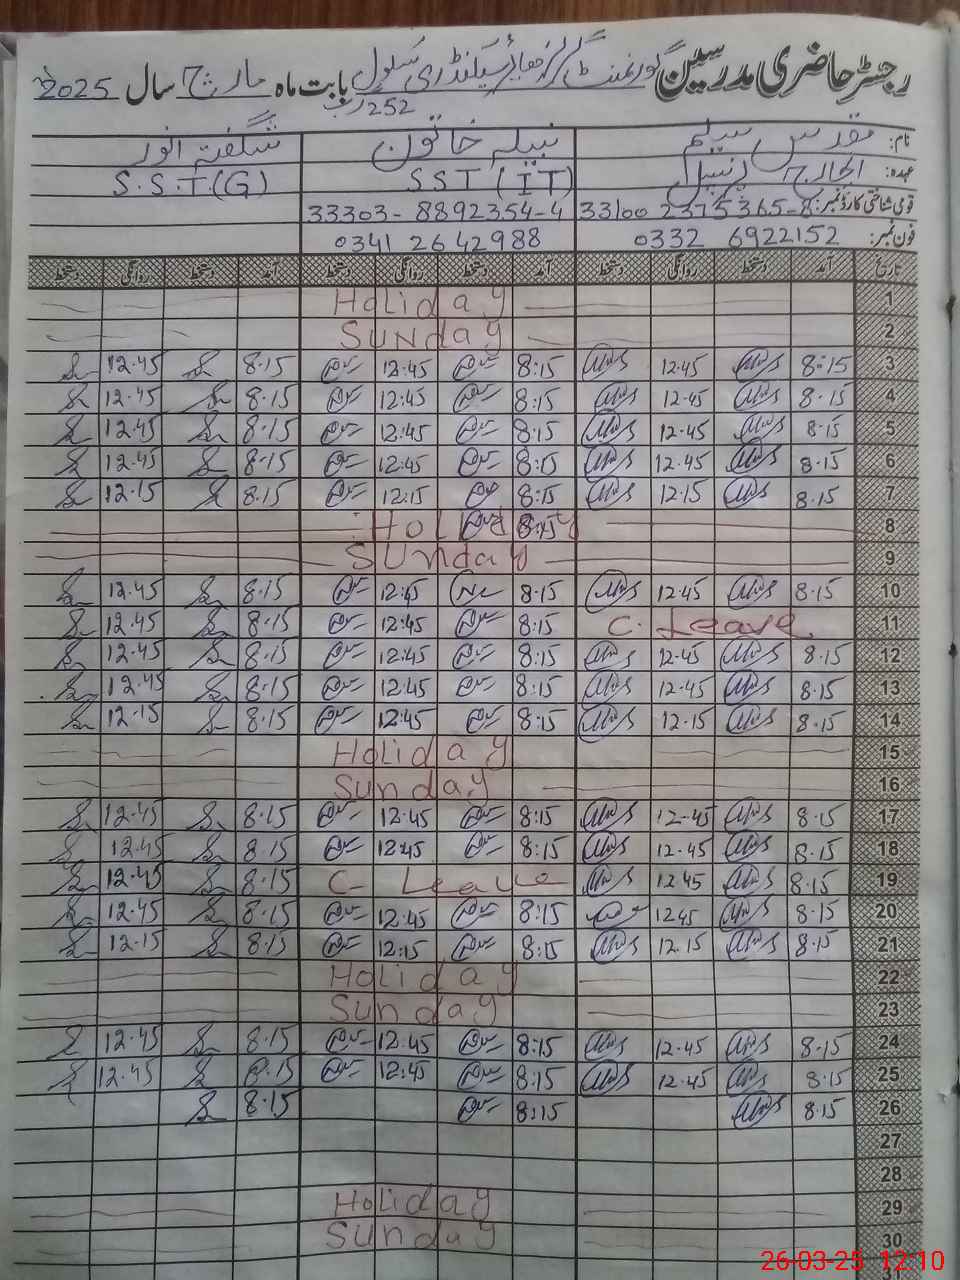 رجسٹر حاضری مدرسین گورنمنٹ گرلز ہائر سیکنڈری سکول بابت ماہ مارچ سال 2025
252 ر ب
نام: مقدس سلیم نبیلہ خاتون شگفتہ انور
عہدہ: انچارج پرنسپل SST (IT) S.S.T(G)
قومی شناختی کارڈ نمبر: 33100 2375365-8 33303-8892354-4
فون نمبر: 0332 6922152 0341 2642988
تاریخ آمد دستخط روانگی دستخط آمد دستخط روانگی دستخط آمد دستخط روانگی دستخط
1 Holiday
2 Sunday
3 8:15 12.45 8:15 12:45 8.15 12.45
4 8.15 12.45 8:15 12:45 8.15 12.45
5 8.15 12.45 8:15 12:45 8.15 12.45
6 8.15 12.45 8:15 12:45 8.15 12.45
7 8.15 12.15 8:15 12:15 8.15 12.15
8 Holiday 8:15
9 Sunday
10 8.15 12.45 8:15 12:45 8.15 12.45
11 C. Leave 8:15 12:45 8.15 12.45
12 8.15 12.45 8:15 12:45 8.15 12.45
13 8.15 12.45 8:15 12:45 8.15 12.45
14 8.15 12.15 8:15 12:45 8.15 12.15
15 Holiday
16 Sunday
17 8.15 12.45 8:15 12:45 8.15 12.45
18 8.15 12.45 8:15 12:45 8.15 12.45
19 8.15 12.45 C- Leave 8.15 12.45
20 8.15 12.45 8:15 12:45 8.15 12.45
21 8.15 12.15 8:15 12:15 8.15 12.15
22 Holiday
23 Sunday
24 8.15 12.45 8:15 12:45 8.15 12.45
25 8.15 12.45 8:15 12:45 8.15 12.45
26 8.15 8:15 8.15
27
28
29 Holiday
30 Sunday
31
26-03-25 12:10